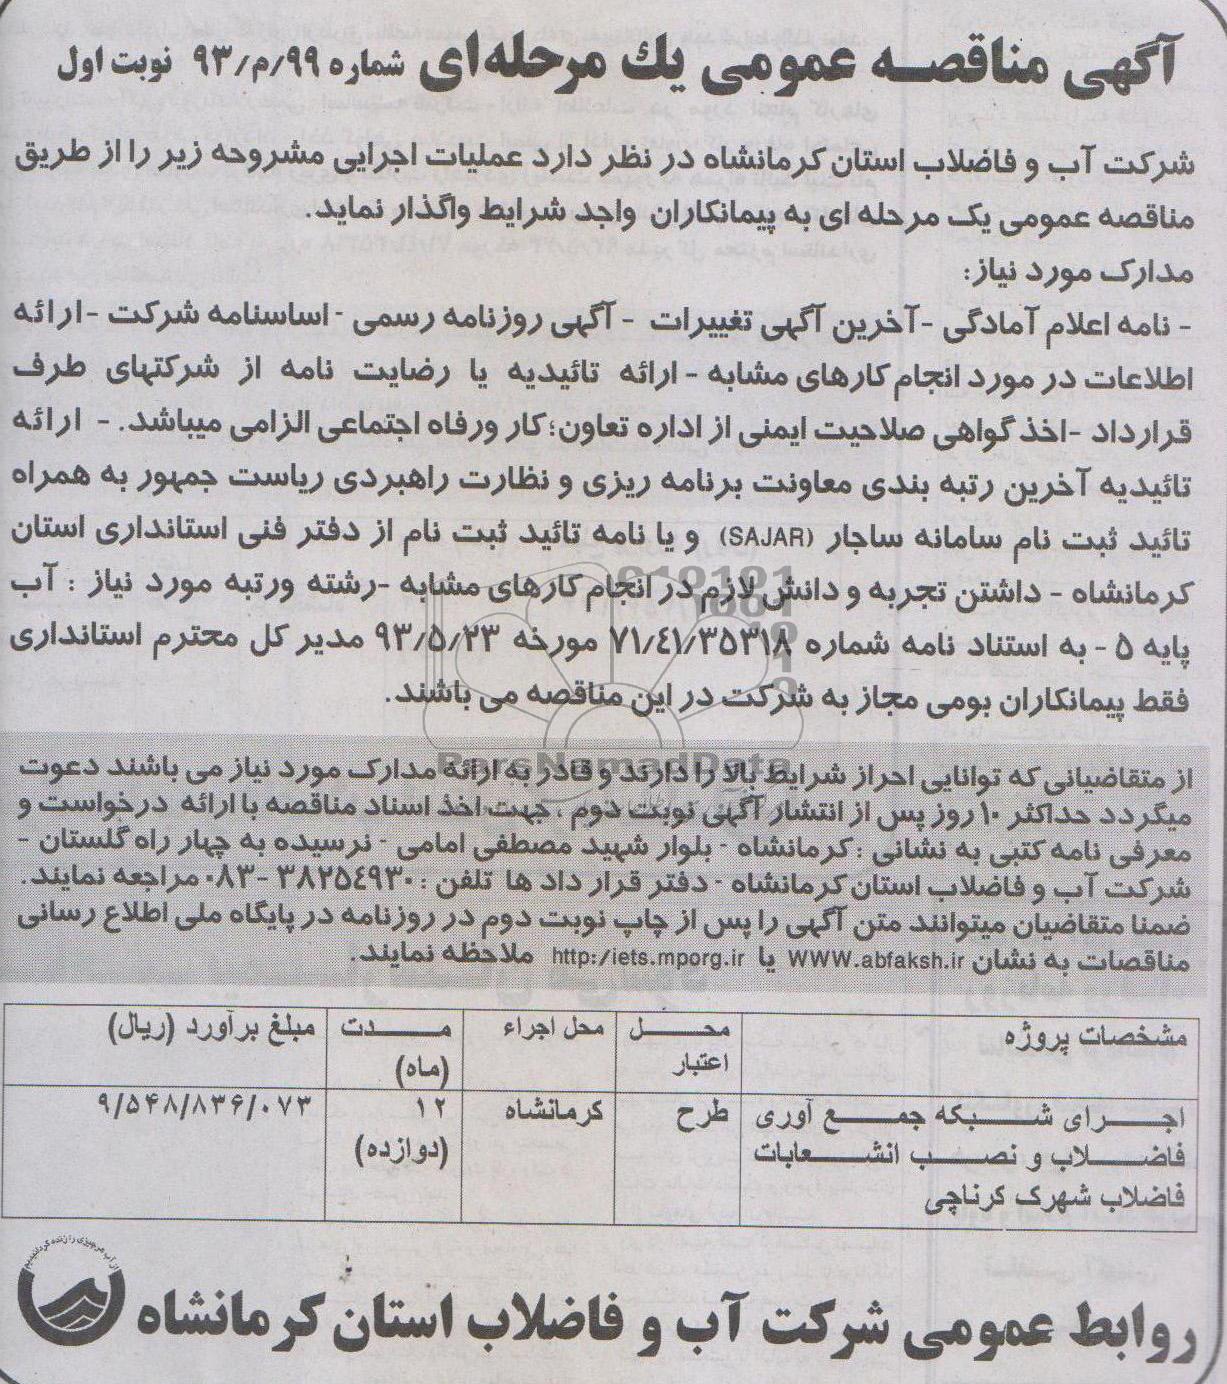 آگهی مناقصه عمومی یك مرحله‌ای شماره ۹۳/م/۹۹ نوبت اول
شرکت آب و فاضلاب استان کرمانشاه در نظر دارد عملیات اجرایی مشروحه زیر را از طریق
مناقصه عمومی یک مرحله ای به پیمانکاران واجد شرایط واگذار نماید.
مدارک مورد نیاز:
- نامه اعلام آمادگی -آخرین آگهی تغییرات - آگهی روزنامه رسمی - اساسنامه شرکت -ارائه
اطلاعات در مورد انجام کارهای مشابه - ارائه تائیدیه یا رضایت نامه از شرکتهای طرف
قرارداد -اخذ گواهی صلاحیت ایمنی از اداره تعاون؛ کار ورفاه اجتماعی الزامی میباشد. - ارائه
تائیدیه آخرین رتبه بندی معاونت برنامه ریزی و نظارت راهبردی ریاست جمهور به همراه
تائید ثبت نام سامانه ساجار (SAJAR) و یا نامه تائید ثبت نام از دفتر فنی استانداری استان
کرمانشاه - داشتن تجربه و دانش لازم در انجام کارهای مشابه -رشته ورتبه مورد نیاز : آب
پایه ۵ - به استناد نامه شماره ۷۱/٤۱/۳۵۳۱۸ مورخه ۹۳/۵/۲۳ مدیر کل محترم استانداری
فقط پیمانکاران بومی مجاز به شرکت در این مناقصه می باشند.
ParsNamadData
از متقاضیانی که توانایی احراز شرایط بالا را دارند و قادر به ارائه مدارک مورد نیاز می باشند دعوت
میگردد حداکثر ۱۰ روز پس از انتشار آگهی نوبت دوم ، جهت اخذ اسناد مناقصه با ارائه درخواست و
معرفی نامه کتبی به نشانی : کرمانشاه - بلوار شهید مصطفی امامی - نرسیده به چهار راه گلستان -
شرکت آب و فاضلاب استان کرمانشاه - دفتر قرار داد ها تلفن : ۳۸۲۵٤۹۳۰ -۰۸۳ مراجعه نمایند.
ضمنا متقاضیان میتوانند متن آگهی را پس از چاپ نوبت دوم در روزنامه در پایگاه ملی اطلاع رسانی
مناقصات به نشان WWW.abfaksh.ir یا http:/iets.mporg.ir ملاحظه نمایند.
مشخصات پروژه
محل اعتبار
محل اجراء
مدت (ماه)
مبلغ برآورد (ریال)
اجرای شبکه جمع آوری
فاضلاب و نصب انشعابات
فاضلاب شهرک کرناچی
طرح
کرمانشاه
۱۲
(دوازده)
۹/۵۴۸/۸۳۶/۰۷۳
روابط عمومی شرکت آب و فاضلاب استان کرمانشاه